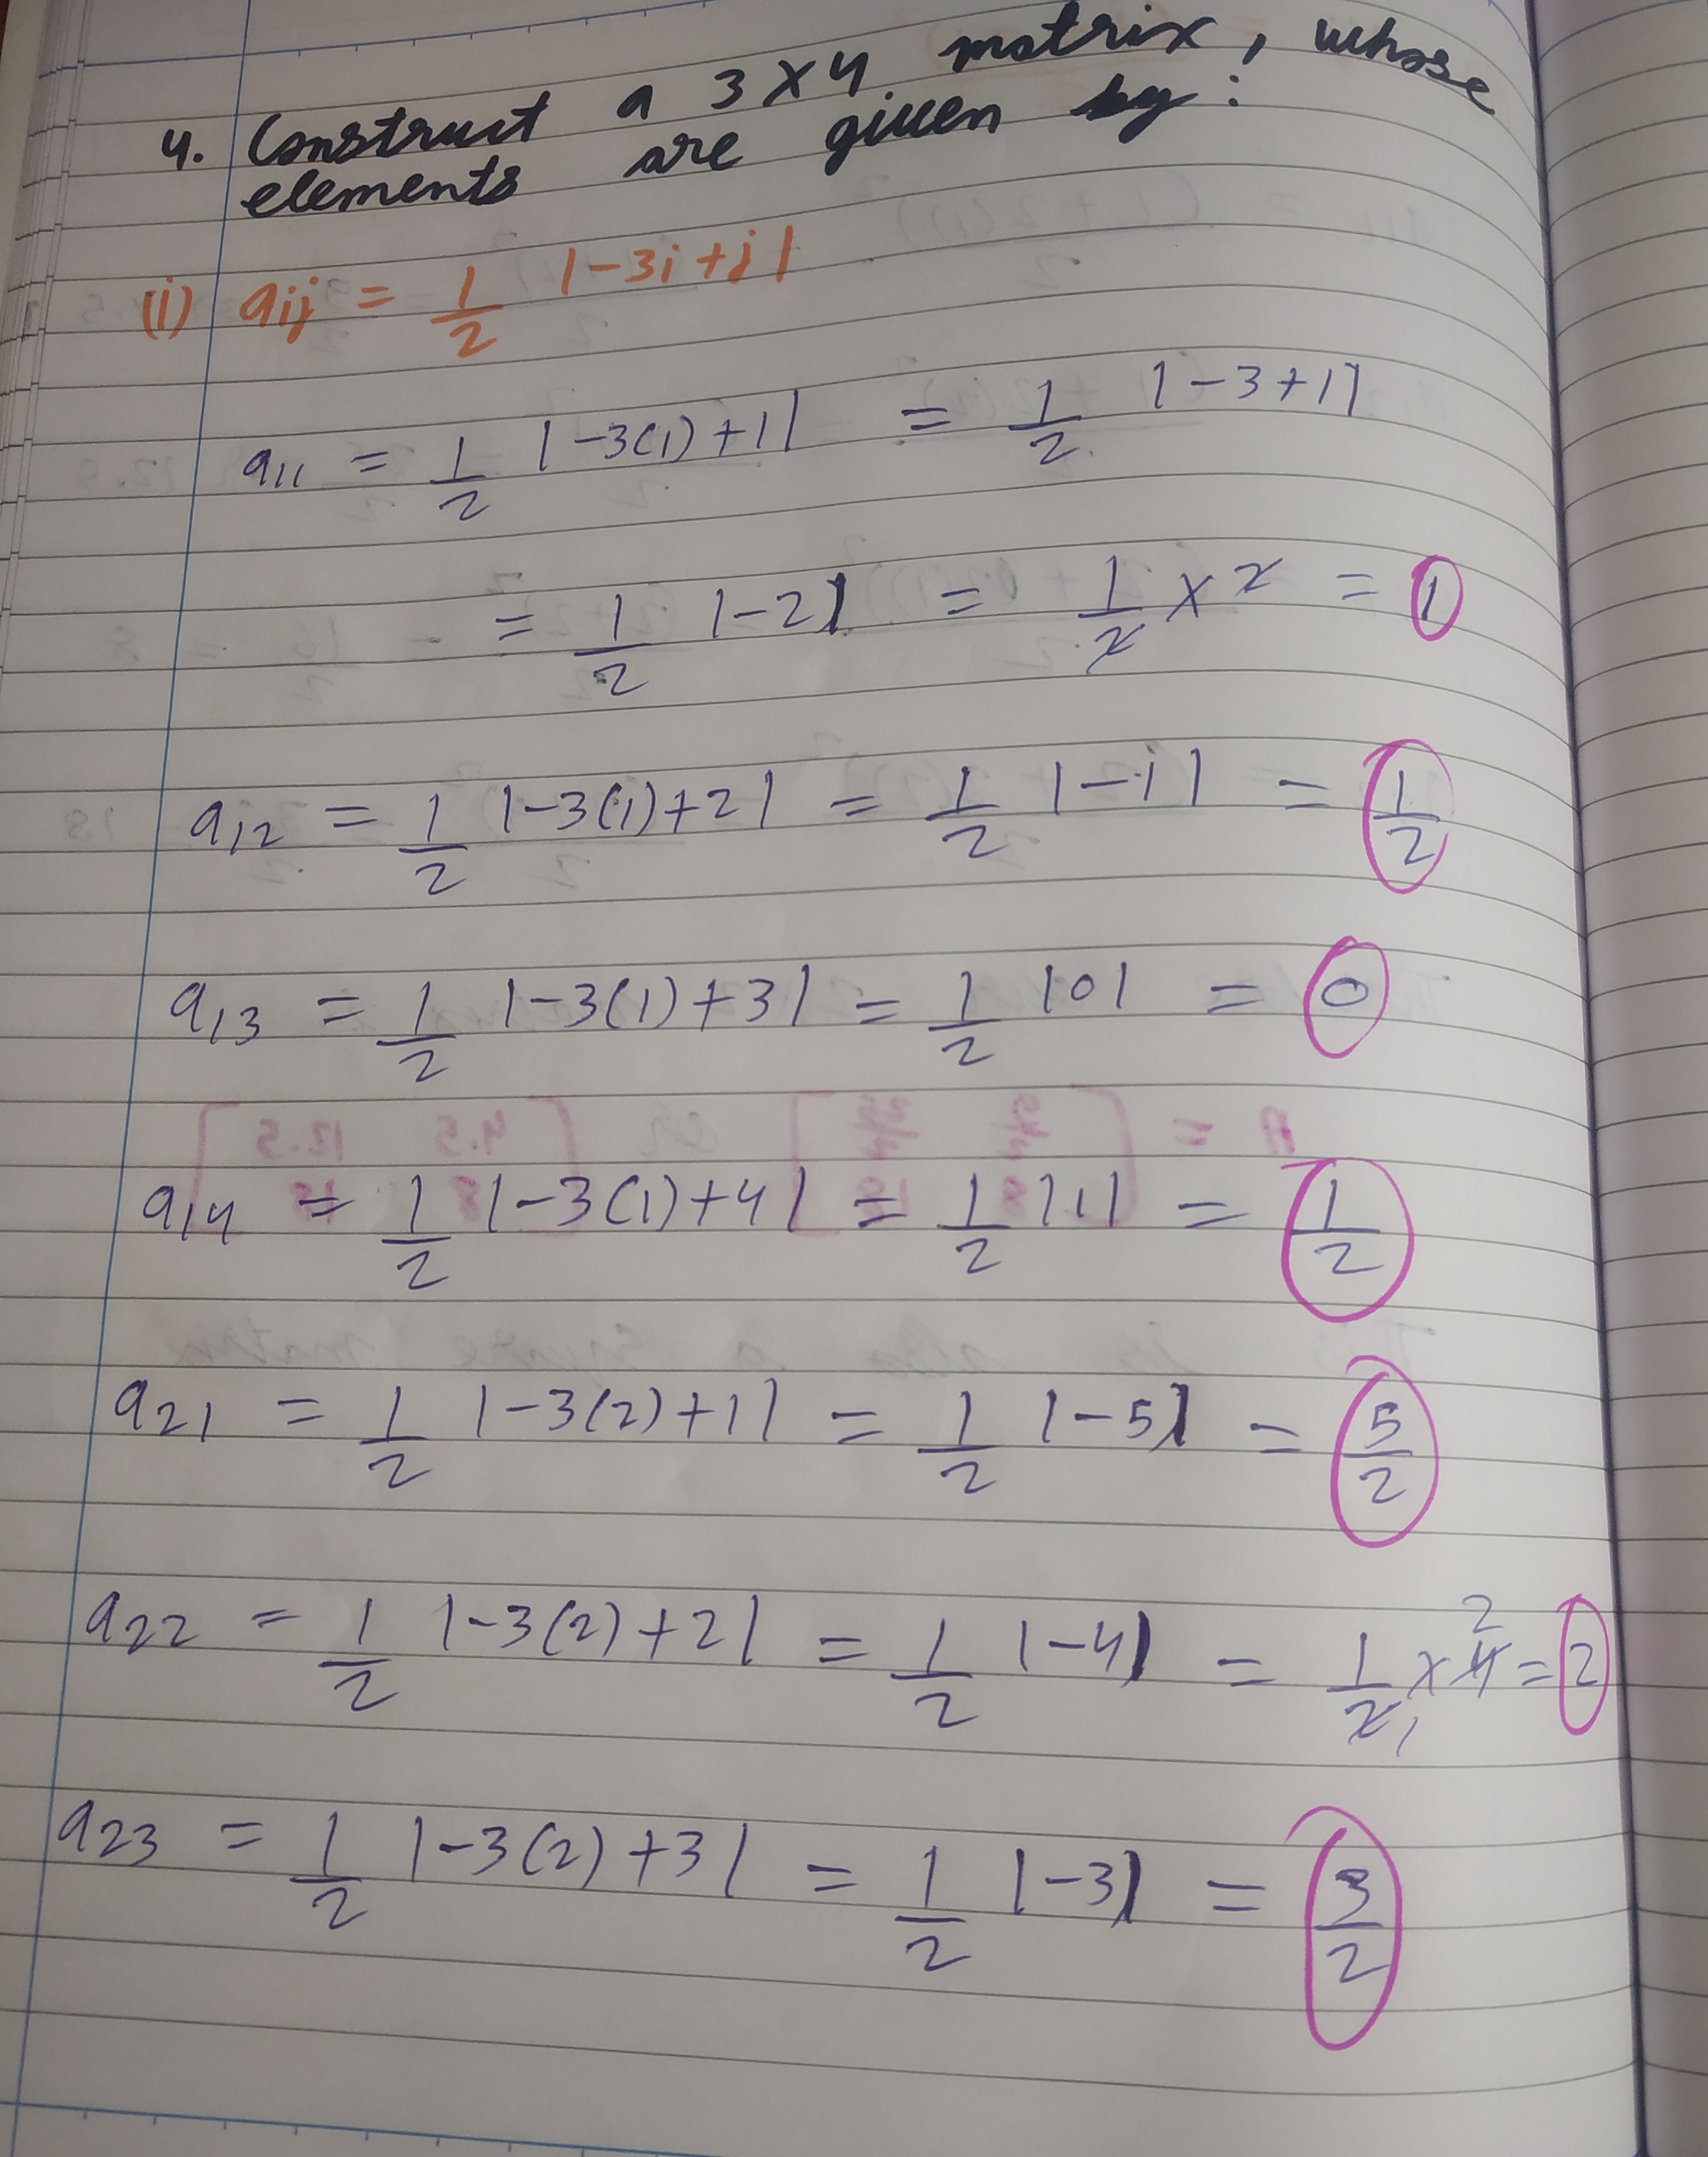 4. Construct a 3×4 matrix, whose
elements are given by:
(i) aij = 1/2 |-3i+j|
a11 = 1/2 |-3(1)+1| = 1/2 |-3+1|
= 1/2 |-2| = 1/2 × 2 = 1
a12 = 1/2 |-3(1)+2| = 1/2 |-1| = 1/2
a13 = 1/2 |-3(1)+3| = 1/2 |0| = 0
a14 = 1/2 |-3(1)+4| = 1/2 |1| = 1/2
a21 = 1/2 |-3(2)+1| = 1/2 |-5| = 5/2
a22 = 1/2 |-3(2)+2| = 1/2 |-4| = 1/2 1 × 4 2 = 2
a23 = 1/2 |-3(2)+3| = 1/2 |-3| = 3/2